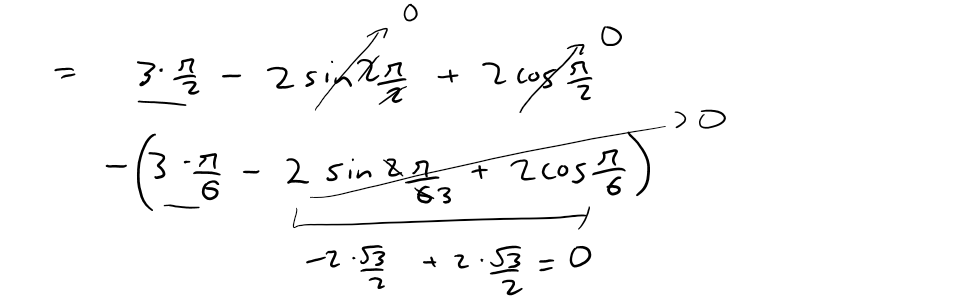 0 0
= 3·π/2 − 2 sin 2π/2 + 2 cos π/2
−(3·π/6 − 2 sin 2π/63 + 2 cos π/6) > 0
−2·√3/2 + 2·√3/2 = 0